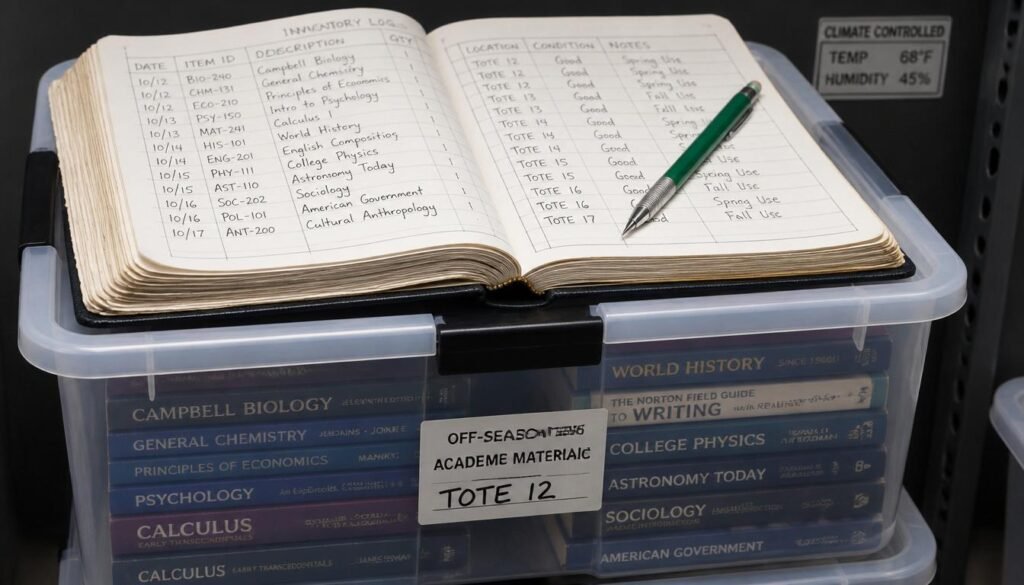 INVENTORY LOG
DATE ITEM ID DESCRIPTION QTY
10/12 BIO-240 Campbell Biology 1
10/12 CHM-131 General Chemistry 1
10/12 ECO-210 Principles of Economics 1
10/13 PSY-150 Intro to Psychology 1
10/13 MAT-241 Calculus 1 1
10/14 HIS-101 World History 1
10/14 ENG-201 English Composition 1
10/15 PHY-111 College Physics 1
10/15 AST-110 Astronomy Today 1
10/16 SOC-202 Sociology 1
10/16 POL-101 American Government 1
10/17 ANT-200 Cultural Anthropology 1
LOCATION CONDITION NOTES
TOTE 12 Good Spring Use
TOTE 12 Good Spring Use
TOTE 12 Good Spring Use
TOTE 13 Good Fall Use
TOTE 13 Good Fall Use
TOTE 14 Good
TOTE 14 Good
TOTE 15 Good Use
TOTE 15 Good Spring Use
TOTE 16 Good Fall Use
TOTE 16 Spring Use
TOTE 17 Fall Use
CLIMATE CONTROLLED
TEMP 68°F
HUMIDITY 45%
CAMPBELL BIOLOGY
GENERAL CHEMISTRY
PRINCIPLES OF ECONOMICS
PSYCHOLOGY
CALCULUS
EARLY
CALCULUS EARLY
ACADEME
TOTE 12
WORLD HISTORY SINCE
THE NORTON FIELD GUIDE
TO WRITING
COLLEGE PHYSICS
ASTRONOMY TODAY
SOCIOLOGY
AMERICAN GOVERNMENT